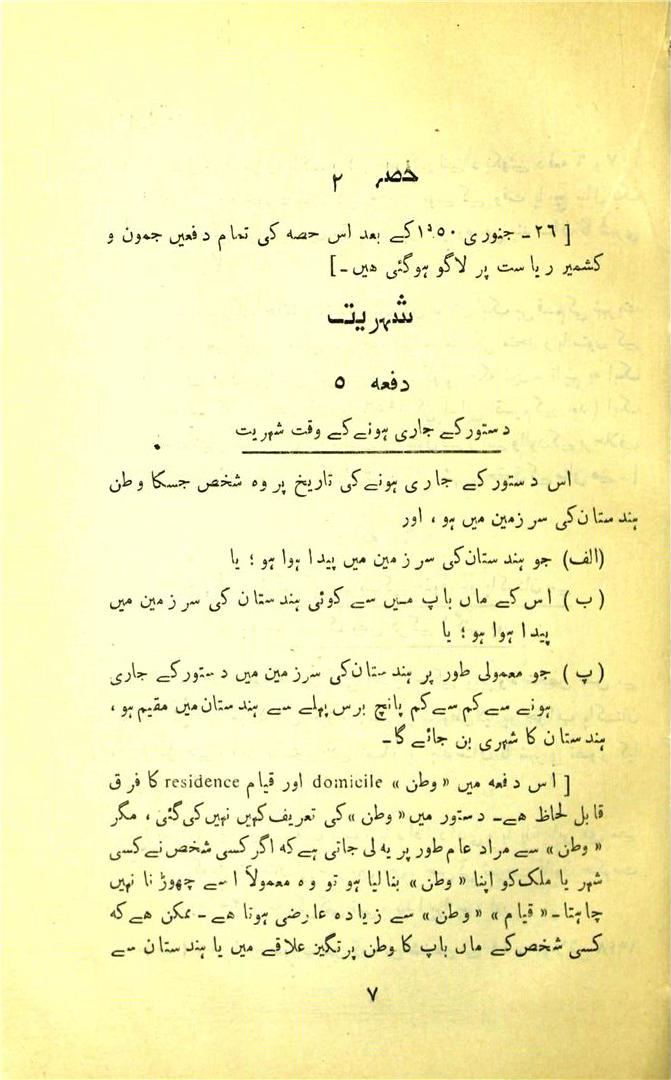 حصہ ۲
[ ۲۶ ۔ جنوری ۱۹۵۰ کے بعد اس حصہ کی تمام دفعیں جموں و
کشمیر ریاست پر لاگو ہوگئی ہیں ۔ ]
شہریت
دفعہ ۵
دستور کے جاری ہونے کے وقت شہریت
اس دستور کے جاری ہونے کی تاریخ پر وہ شخص جسکا وطن
ہندستان کی سرزمین میں ہو ، اور
(الف) جو ہندستان کی سرزمین میں پیدا ہوا ہو ؛ یا
( ب ) اس کے ماں باپ میں سے کوئی ہندستان کی سرزمین میں
پیدا ہوا ہو ؛ یا
( پ ) جو معمولی طور پر ہندستان کی سرزمین میں دستور کے جاری
ہونے سے کم سے کم پانچ برس پہلے سے ہندستان میں مقیم ہو ،
ہندستان کا شہری بن جائے گا ۔
[ اس دفعہ میں « وطن » domicile اور قیام residence کا فرق
قابل لحاظ ہے ۔ دستور میں « وطن » کی تعریف کہیں نہیں کی گئی ، مگر
« وطن » سے مراد عام طور پر یہ لی جاتی ہے کہ اگر کسی شخص نے کسی
شہر یا ملک کو اپنا « وطن » بنا لیا ہو تو وہ معمولاً اسے چھوڑنا نہیں
چاہتا ۔ « قیام » « وطن » سے زیادہ عارضی ہوتا ہے ۔ ممکن ہے کہ
کسی شخص کے ماں باپ کا وطن پرتگیز علاقے میں یا ہندستان سے
۷